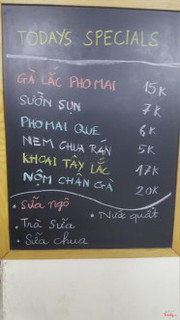 TODAYS SPECIALS
GÀ LẮC PHO MAI 15K
SƯỜN SỤN 7K
PHOMAI QUE 6K
NEM CHUA RÁN 5K
KHOAI TÂY LẮC 17K
NỘM CHÂN GÀ 20K
• Sữa ngô
• Nước quất
• Trà Sữa
• Sữa chua